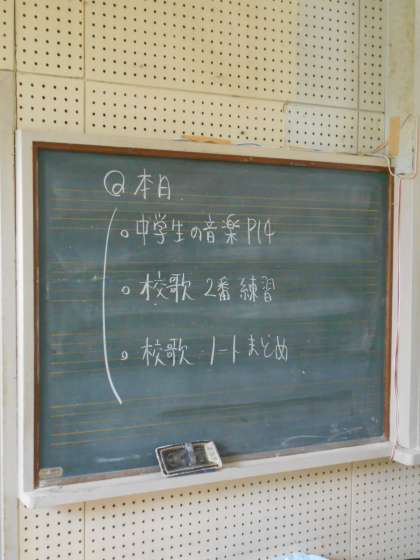 @本日
。中学生の音楽 P14
。校歌 2番 練習
。校歌 ノート まとめ